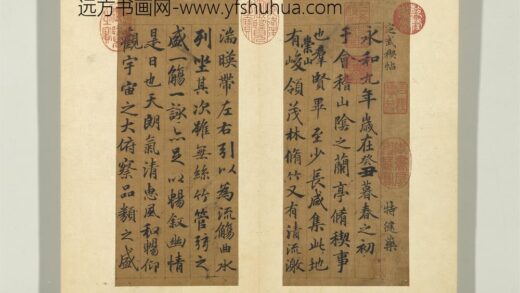 远方书画网-www.yfshuhua.com
定武稧帖
永和九年歲在癸丑暮春之初
于會稽山陰之蘭亭脩稧事
也羣賢畢至少長咸集此地
有崇峻領茂林脩竹又有清流激
特健藥
湍暎帶左右引以為流觴曲水
列坐其次雖無絲竹管弦之
盛一觴一詠亦足以暢敘幽情
是日也天朗氣清惠風和暢仰
觀宇宙之大俯察品類之盛